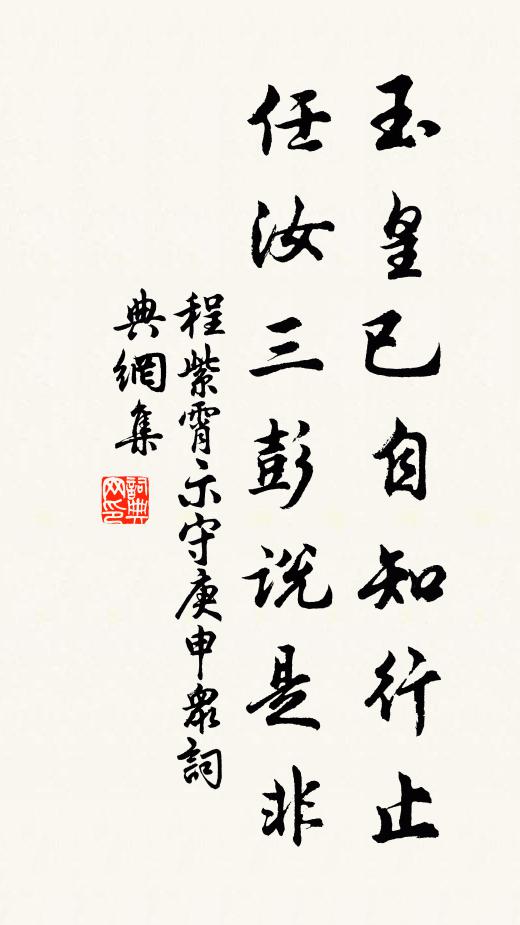 玉皇已自知行止
任汝三彭説是非
程紫霄示守庚申眾詞
典網集
詞典
网印